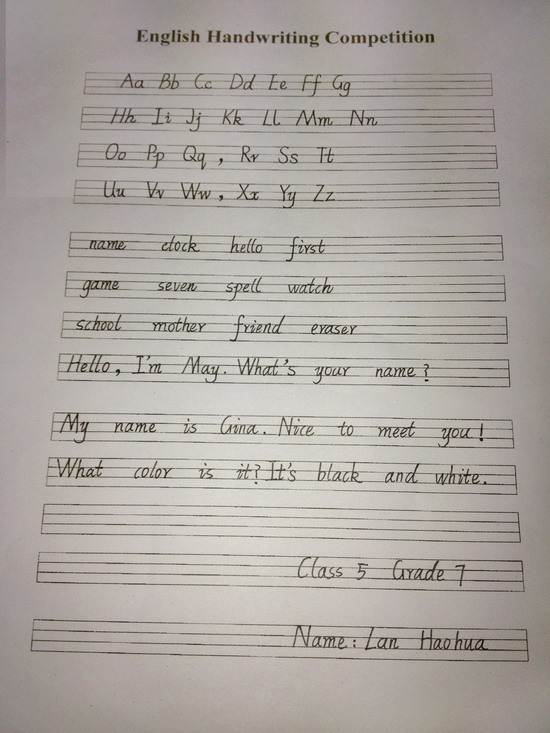 English Handwriting Competition
Aa Bb Cc Dd Ee Ff Gg
Hh Ii Jj Kk Ll Mm Nn
Oo Pp Qq , Rr Ss Tt
Uu Vv Ww , Xx Yy Zz
name clock hello first
game seven spell watch
school mother friend eraser
Hello, I'm May. What's your name?
My name is Gina. Nice to meet you!
What color is it? It's black and white.
Class 5 Grade 7
Name: Lan Haohua